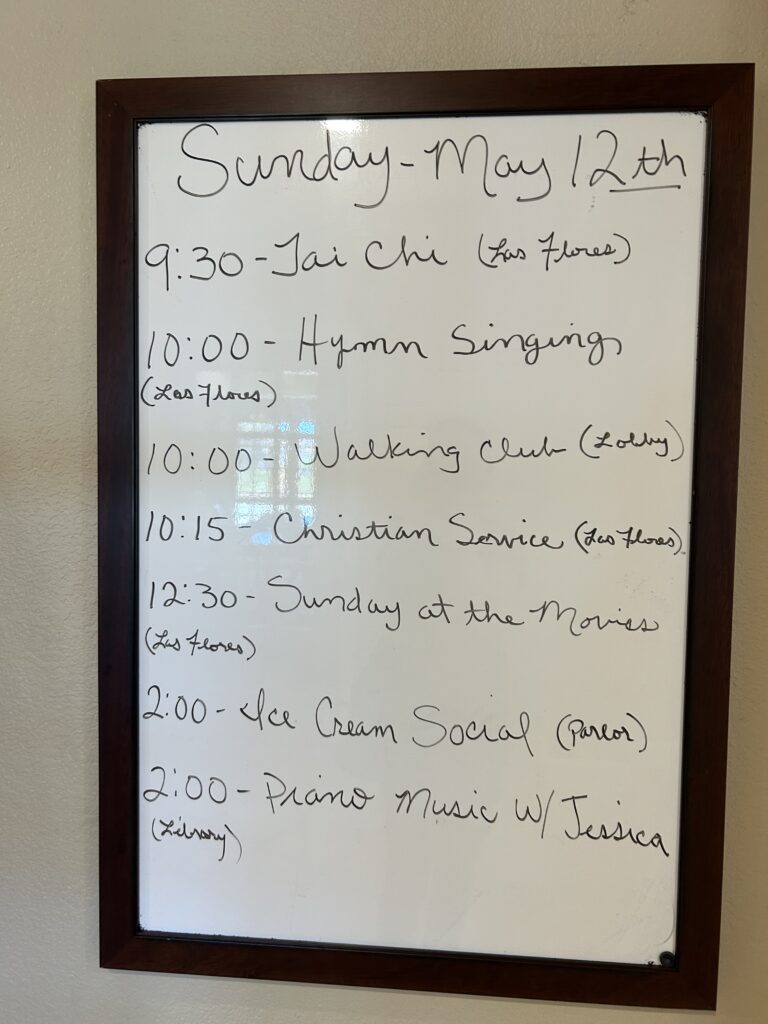 Sunday - May 12th
9:30 - Tai Chi (Las Flores)
10:00 - Hymn Singing
(Las Flores)
10:00 - Walking Club (Lobby)
10:15 - Christian Service (Las Flores)
12:30 - Sunday at the Movies
(Las Flores)
2:00 - Ice Cream Social (Parlor)
2:00 - Piano Music W/ Jessica
(Library)